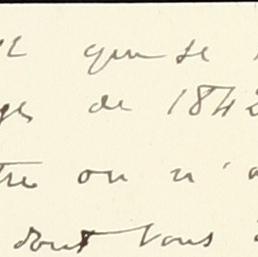 que se
de 1842
on n'
dont vous